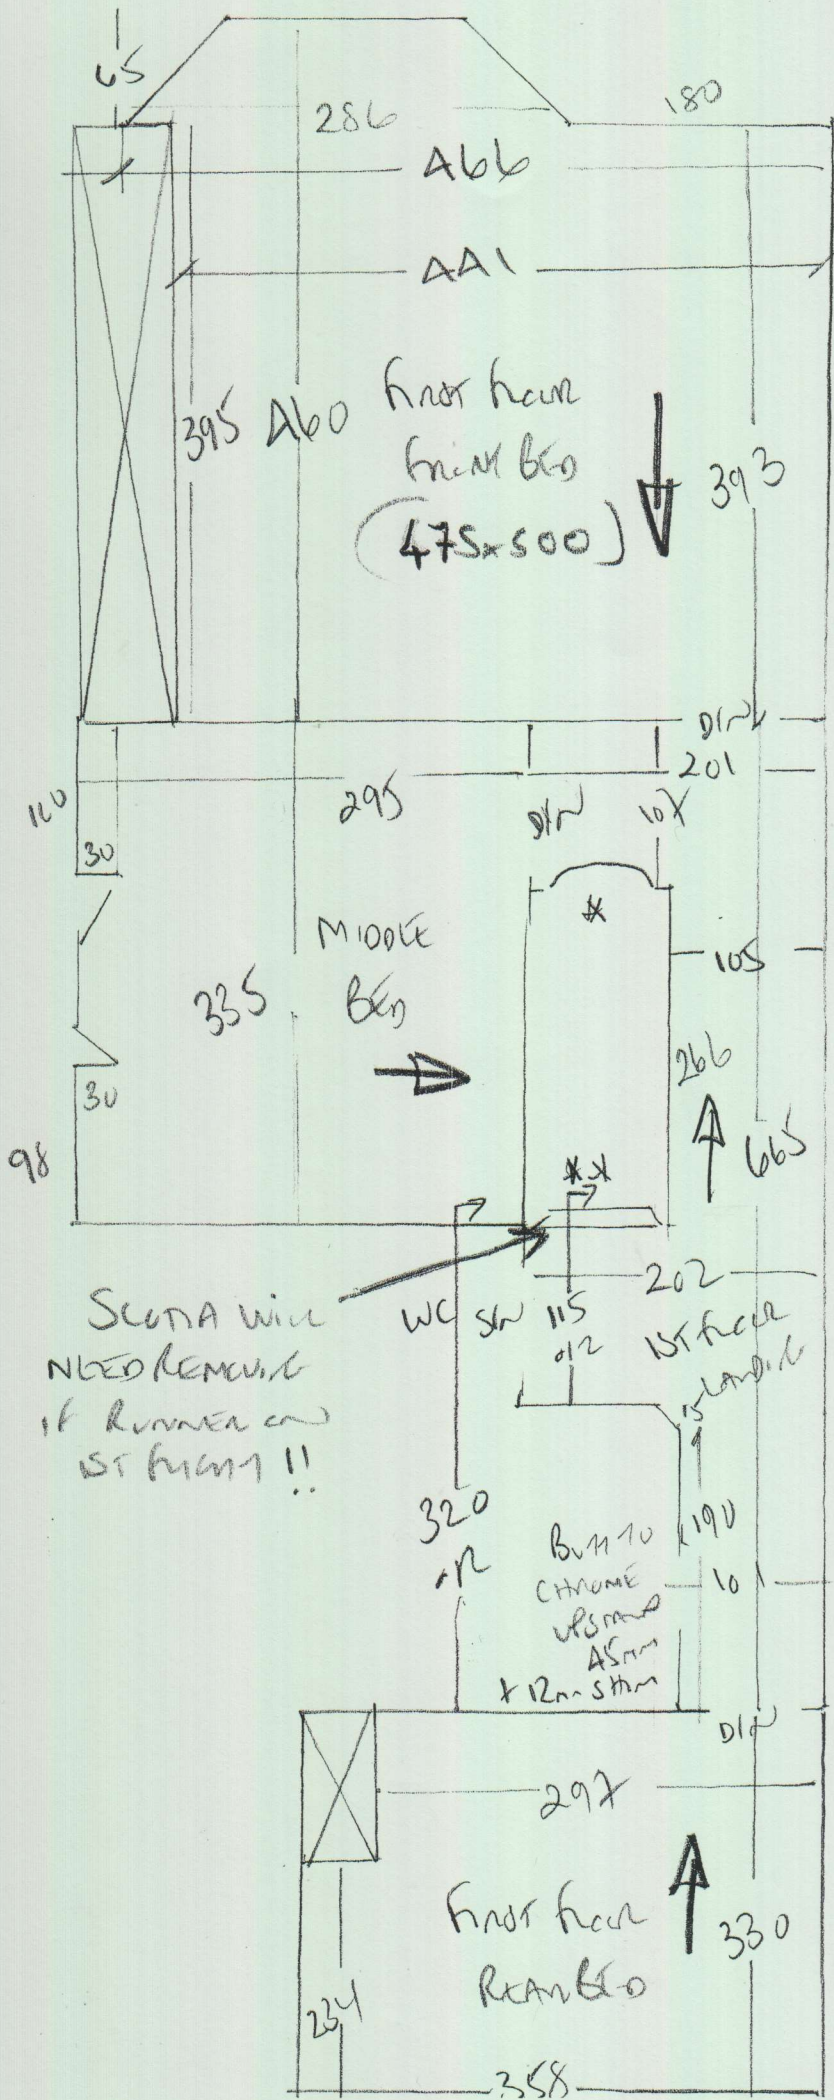 65
286
180
466
441
395 460
FIRST FLOOR
FRONT BED
(475x500)
393
DIN
201
295
DIN
107
120
30
*
MIDDLE
BED
335
105
266
665
30
98
**
202
SCOTIA WILL
NEED REMOVING
IF RUNNER ON
1ST FLIGHT !!
WC SIN
115
1ST FLOOR
LANDING
15
320
190
101
BUTT TO
CHROME
UPSTAND
45mm
+ 12mm SHIM
DIN
297
FIRST FLOOR
REAR BED
330
234
358